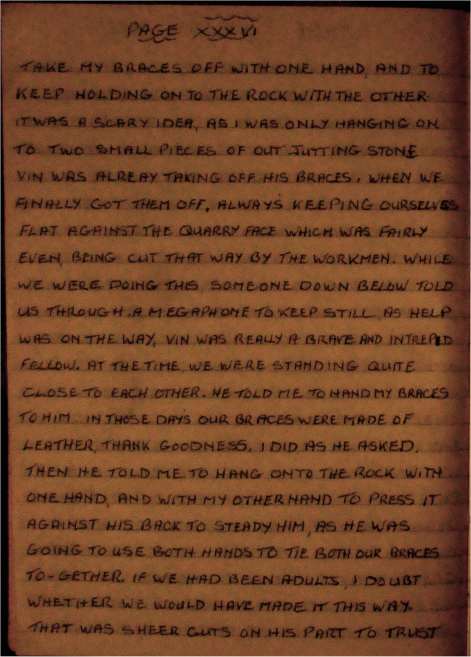 PAGE XXXVI
TAKE MY BRACES OFF WITH ONE HAND, AND TO
KEEP HOLDING ON TO THE ROCK WITH THE OTHER.
IT WAS A SCARY IDEA, AS I WAS ONLY HANGING ON
TO TWO SMALL PIECES OF OUT JUTTING STONE
VIN WAS ALREAY TAKING OFF HIS BRACES, WHEN WE
FINALLY GOT THEM OFF, ALWAYS KEEPING OURSELVES
FLAT AGAINST THE QUARRY FACE WHICH WAS FAIRLY
EVEN, BEING CUT THAT WAY BY THE WORKMEN. WHILE
WE WERE DOING THIS, SOMEONE DOWN BELOW TOLD
US THROUGH A MEGAPHONE TO KEEP STILL, AS HELP
WAS ON THE WAY, VIN WAS REALLY A BRAVE AND INTREPID
FELLOW. AT THE TIME, WE WERE STANDING QUITE
CLOSE TO EACH OTHER. HE TOLD ME TO HAND MY BRACES
TO HIM. IN THOSE DAYS OUR BRACES WERE MADE OF
LEATHER, THANK GOODNESS. I DID AS HE ASKED.
THEN HE TOLD ME TO HANG ONTO THE ROCK WITH
ONE HAND, AND WITH MY OTHER HAND TO PRESS IT
AGAINST HIS BACK TO STEADY HIM, AS HE WAS
GOING TO USE BOTH HANDS TO TIE BOTH OUR BRACES
TO-GETHER. IF WE HAD BEEN ADULTS, I DOUBT
WHETHER WE WOULD HAVE MADE IT THIS WAY.
THAT WAS SHEER GUTS ON HIS PART TO TRUST